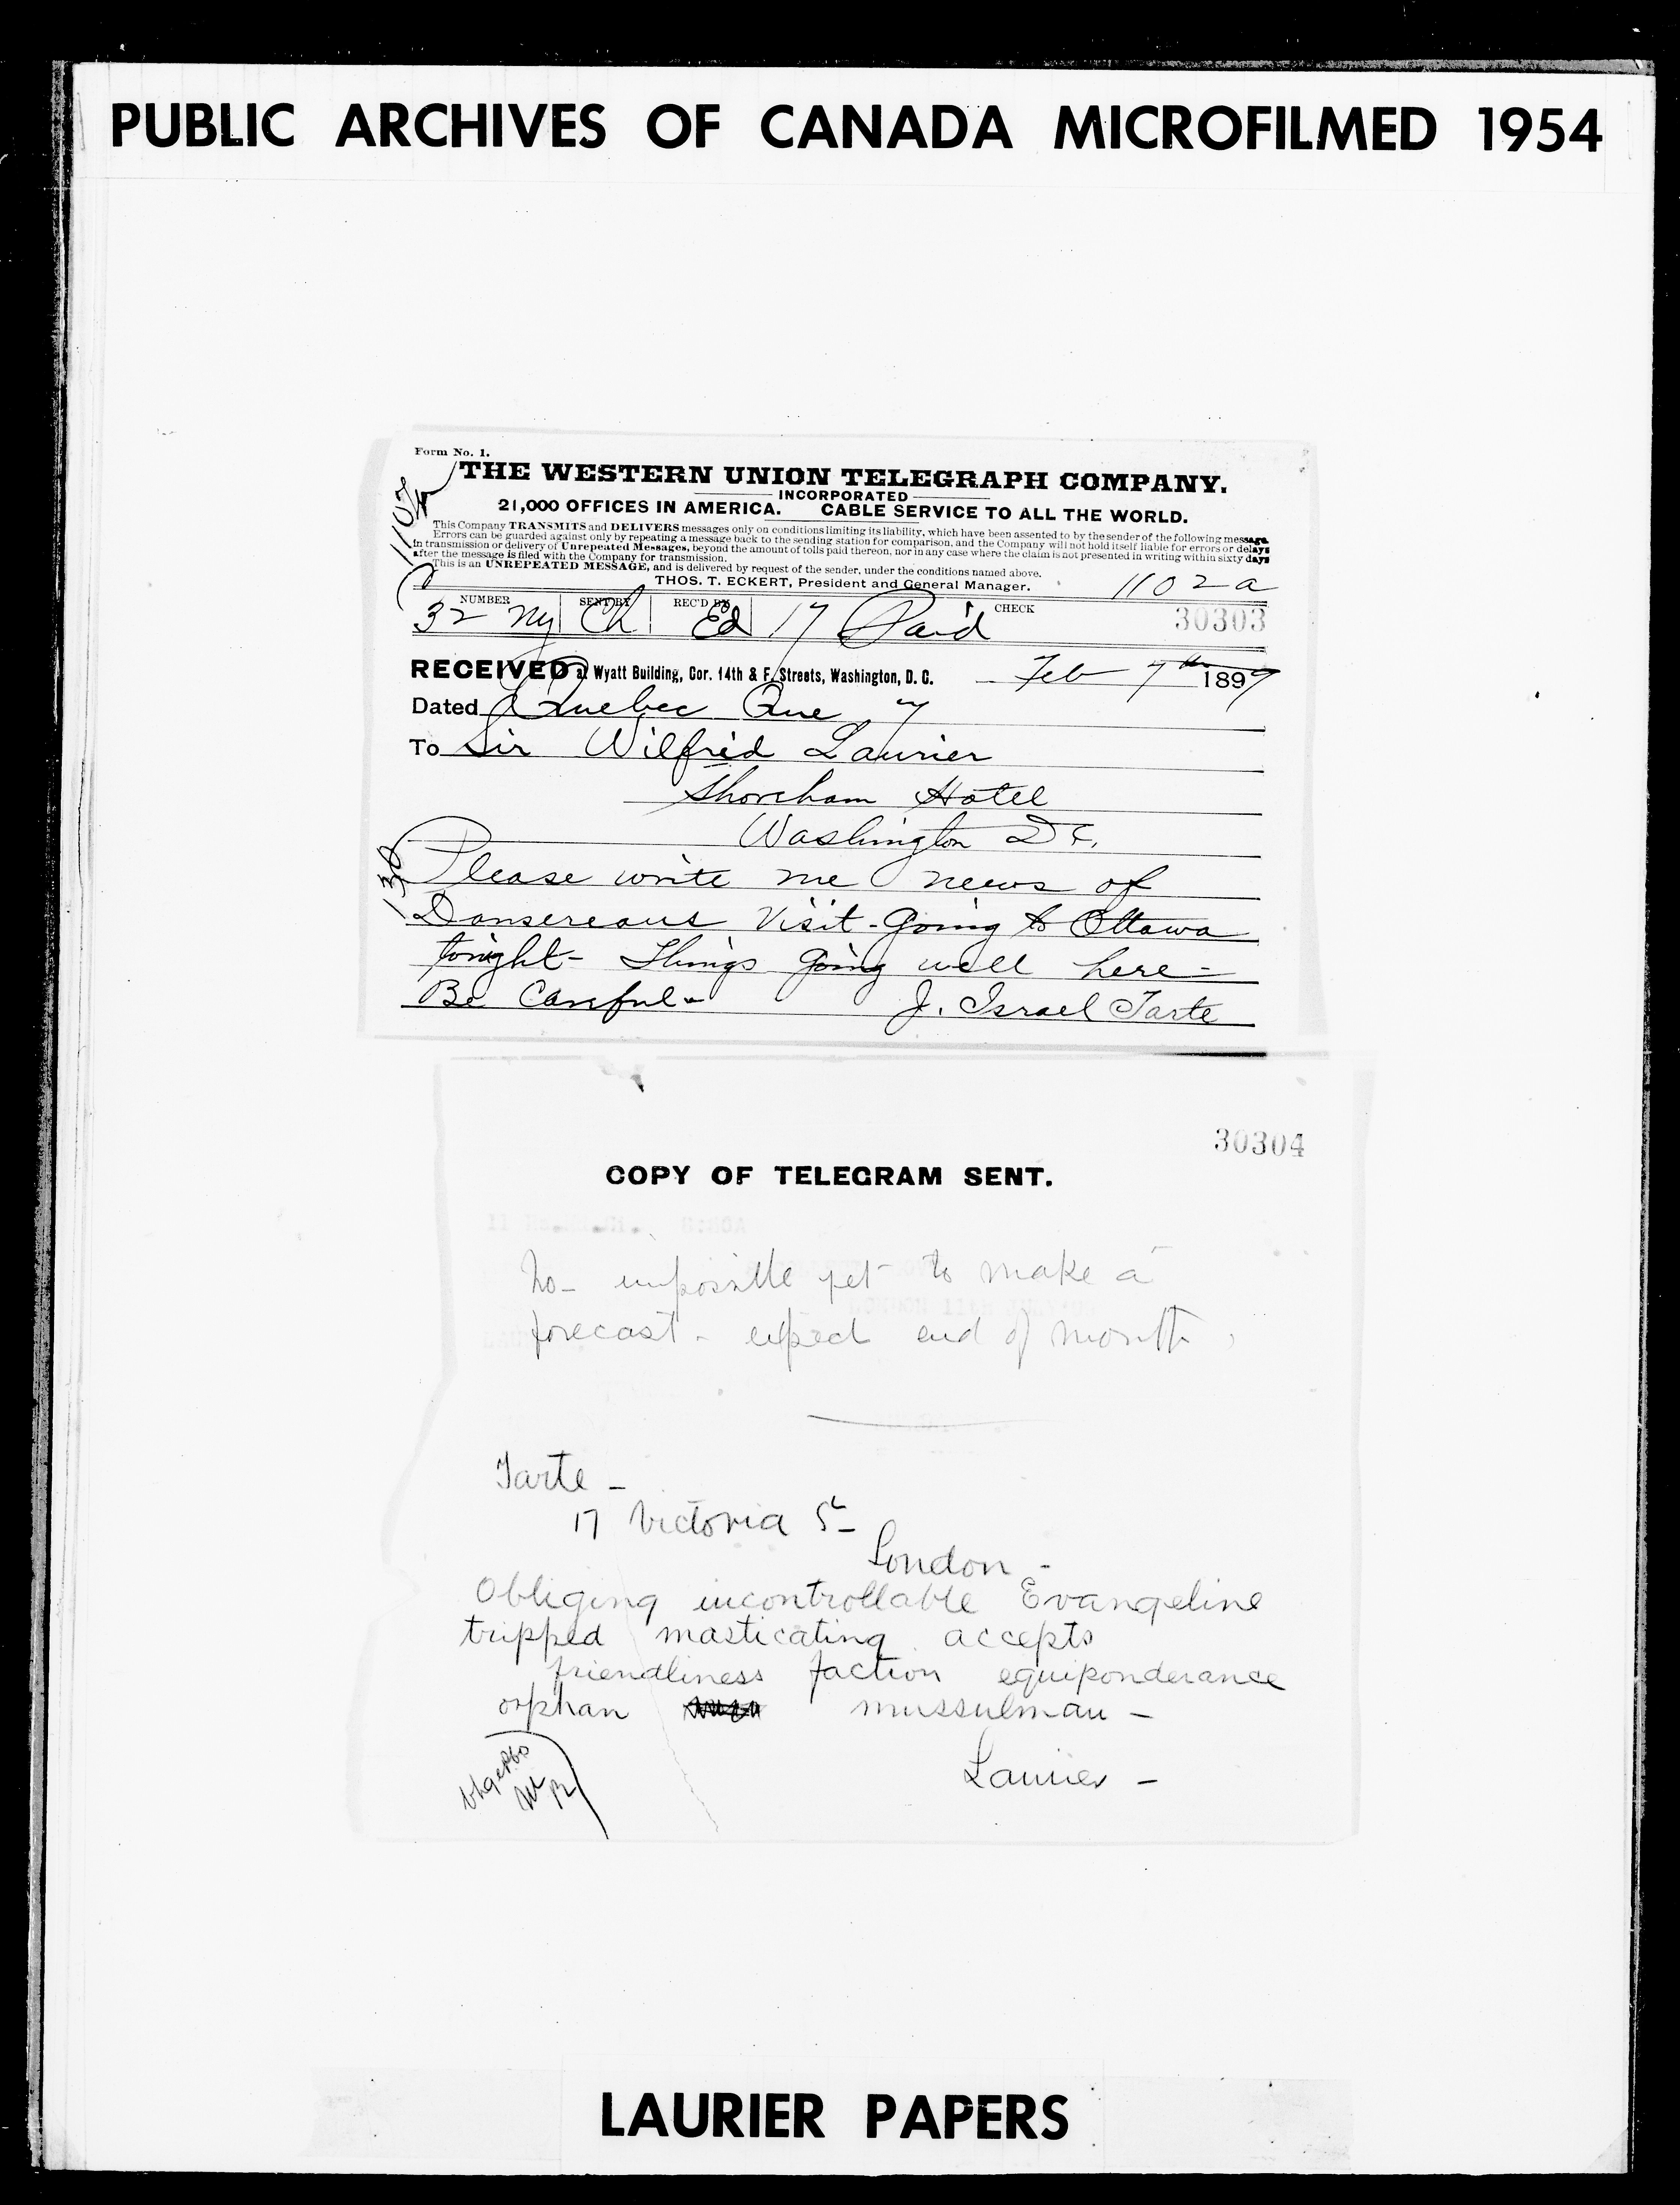 PUBLIC ARCHIVES OF CANADA MICROFILMED 1954
Form No. 1.
THE WESTERN UNION TELEGRAPH COMPANY.
INCORPORATED
21,000 OFFICES IN AMERICA. CABLE SERVICE TO ALL THE WORLD.
This Company TRANSMITS and DELIVERS messages only on conditions limiting its liability, which have been assented to by the sender of the following message.
Errors can be guarded against only by repeating a message back to the sending station for comparison, and the Company will not hold itself liable for errors or delays
in transmission or delivery of Unrepeated Messages, beyond the amount of tolls paid thereon, nor in any case where the claim is not presented in writing within sixty days
after the message is filed with the Company for transmission.
This is an UNREPEATED MESSAGE, and is delivered by request of the sender, under the conditions named above.
THOS. T. ECKERT, President and General Manager.
1102a
NUMBER SENT BY REC'D BY CHECK
32 Ny Ch Ed 17 Paid
30303
RECEIVED at Wyatt Building, Cor. 14th & F. Streets, Washington, D. C. Feb 7th 1897
Dated Quebec Que 7
To Sir Wilfrid Laurier
Shoreham Hotel
Washington DC.
130
Please write me news of
Dansereaus Visit - Going to Ottawa
tonight - Things going well here -
Be Careful -
J. Israel Tarte
30304
COPY OF TELEGRAM SENT.
No - impossible yet to make a
forecast - expect end of month
Tarte -
17 Victoria St -
London -
Obliging incontrollable Evangeline
tripped masticating accepts
friendliness faction equiponderance
orphan mussulman -
Laurier -
LAURIER PAPERS